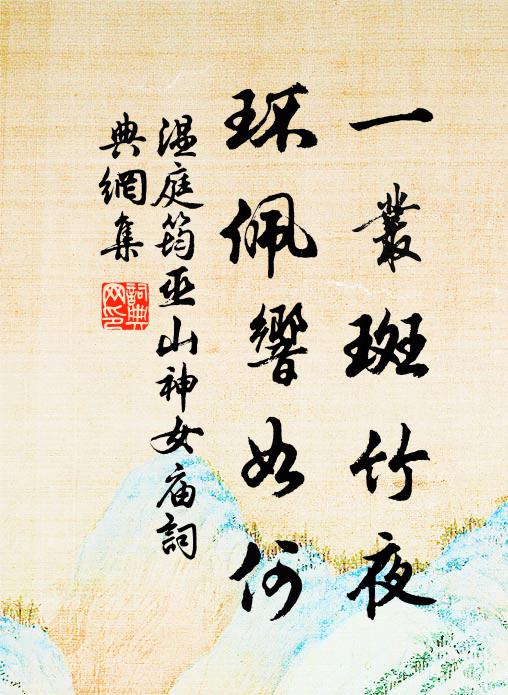 一叢斑竹夜
環佩響如何
温庭筠巫山神女庙詞
典網集
詞典網印